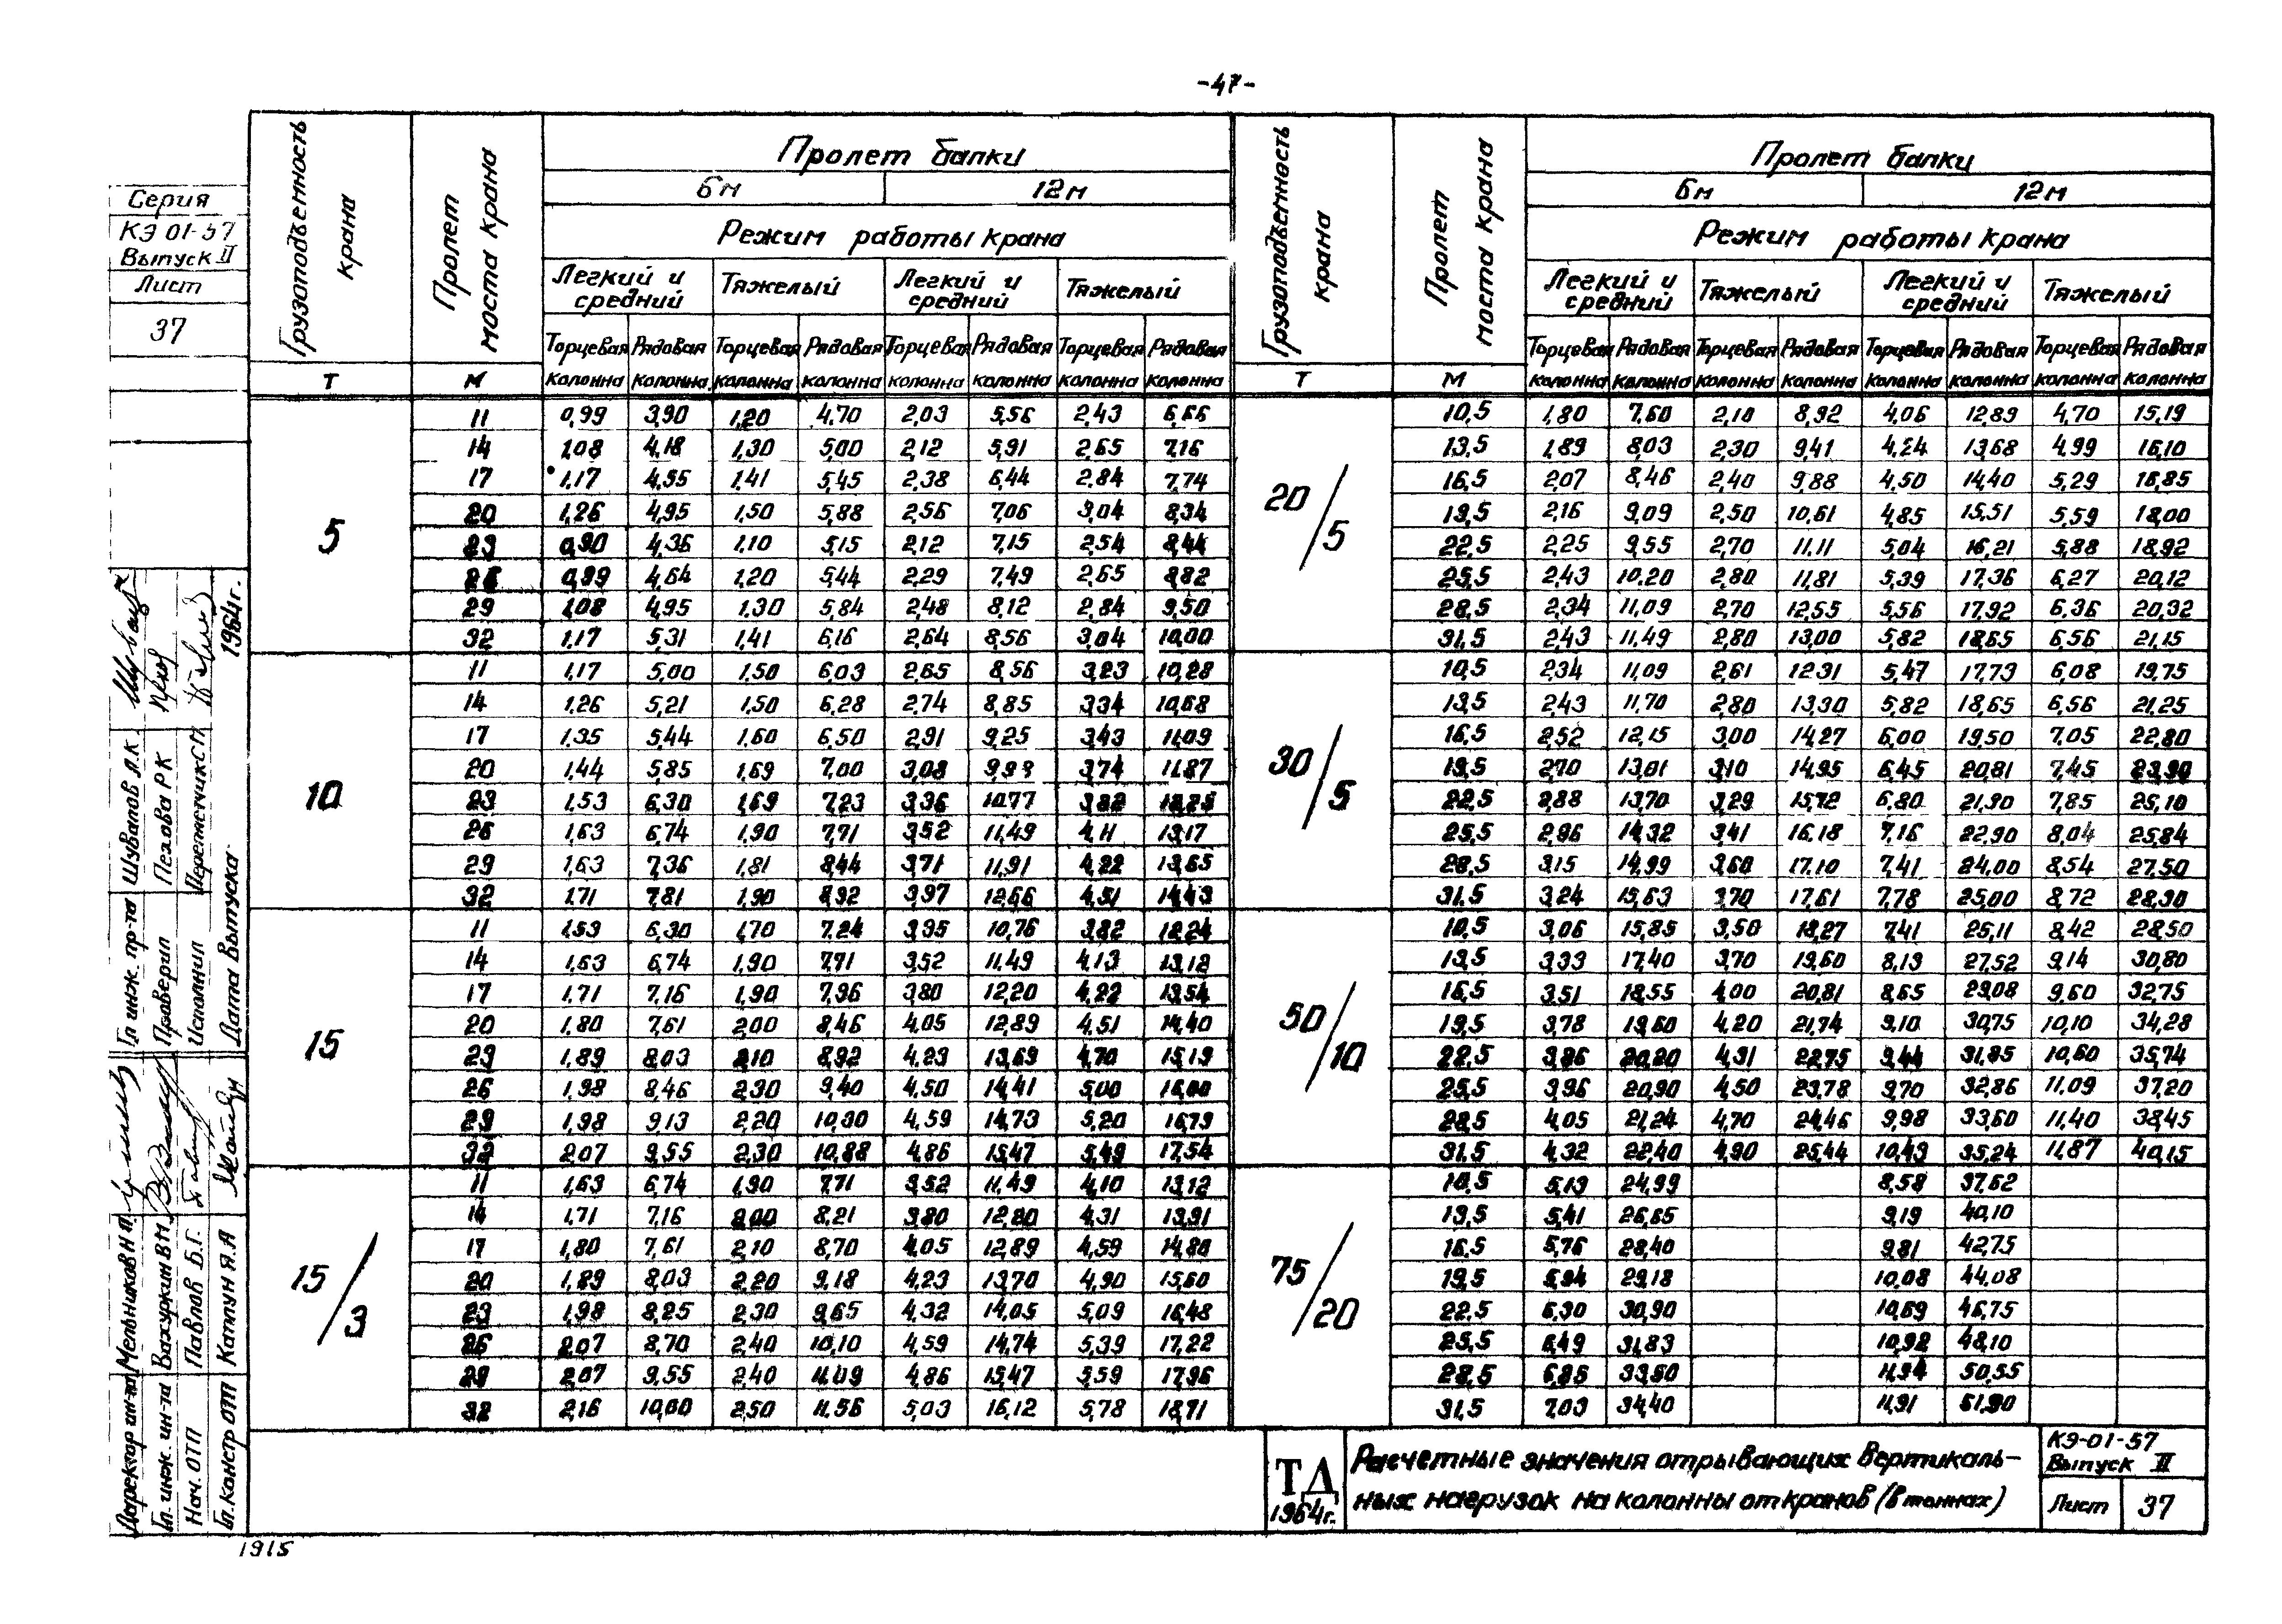 -47-
Серия
КЭ 01-57
Выпуск II
Лист
37
Грузоподъемность крана
Пролет моста крана
Пролет балки
6м 12м
Режим работы крана
Легкий и средний Тяжелый Легкий и средний Тяжелый
Торцевая Рядовая Торцевая Рядовая Торцевая Рядовая Торцевая Рядовая
Т М колонна колонна колонна колонна колонна колонна колонна колонна
5
11 0,99 3,90 1,20 4,70 2,03 5,56 2,43 6,66
14 1,08 4,18 1,30 5,00 2,12 5,91 2,65 7,16
17 1,17 4,55 1,41 5,45 2,38 6,44 2,84 7,74
20 1,26 4,95 1,50 5,88 2,56 7,06 3,04 8,34
23 0,90 4,36 1,10 5,15 2,12 7,15 2,54 8,44
26 0,99 4,64 1,20 5,44 2,29 7,49 2,65 8,82
29 1,08 4,95 1,30 5,84 2,48 8,12 2,84 9,50
32 1,17 5,31 1,41 6,16 2,64 8,56 3,04 10,00
10
11 1,17 5,00 1,50 6,03 2,65 8,56 3,23 10,28
14 1,26 5,21 1,50 6,28 2,74 8,85 3,34 10,68
17 1,35 5,44 1,60 6,50 2,91 9,25 3,43 11,09
20 1,44 5,85 1,69 7,00 3,08 9,93 3,74 11,87
23 1,53 6,30 1,69 7,23 3,36 10,77 3,82
26 1,63 6,74 1,90 7,71 3,52 11,49 4,11 13,17
29 1,63 7,36 1,81 8,44 3,71 11,91 4,22 13,65
32 1,71 7,81 1,90 8,92 3,97 12,66 4,51 14,43
15
11 1,53 6,30 1,70 7,24 3,35 10,76 3,82 12,24
14 1,63 6,74 1,90 7,71 3,52 11,49 4,13 13,12
17 1,71 7,16 1,90 7,96 3,80 12,20 4,22 13,54
20 1,80 7,61 2,00 8,46 4,05 12,89 4,51 14,40
23 1,89 8,03 2,10 8,92 4,23 13,69 4,70 15,19
26 1,98 8,46 2,30 9,40 4,50 14,41 5,00 16,00
29 1,98 9,13 2,20 10,30 4,59 14,73 5,20 16,79
32 2,07 9,55 2,30 10,88 4,86 15,47 5,49 17,54
15/3
11 1,63 6,74 1,90 7,71 3,52 11,49 4,10 13,12
14 1,71 7,16 2,00 8,21 3,80 12,20 4,31 13,91
17 1,80 7,61 2,10 8,70 4,05 12,89 4,59 14,80
20 1,89 8,03 2,20 9,18 4,23 13,70 4,90 15,60
23 1,98 8,25 2,30 9,65 4,32 14,05 5,09 16,48
26 2,07 8,70 2,40 10,10 4,59 14,74 5,39 17,22
29 2,07 9,55 2,40 11,09 4,86 15,47 5,59 17,96
32 2,16 10,00 2,50 11,56 5,03 16,12 5,78 18,71
Грузоподъемность крана
Пролет моста крана
Пролет балки
6м 12м
Режим работы крана
Легкий и средний Тяжелый Легкий и средний Тяжелый
Торцевая Рядовая Торцевая Рядовая Торцевая Рядовая Торцевая Рядовая
Т М колонна колонна колонна колонна колонна колонна колонна колонна
20/5
10,5 1,80 7,60 2,10 8,92 4,06 12,89 4,70 15,19
13,5 1,89 8,03 2,30 9,41 4,24 13,68 4,99 16,10
16,5 2,07 8,46 2,40 9,88 4,50 14,40 5,29 16,85
19,5 2,16 9,09 2,50 10,61 4,85 15,51 5,59 18,00
22,5 2,25 9,55 2,70 11,11 5,04 16,21 5,88 18,92
25,5 2,43 10,20 2,80 11,81 5,39 17,36 6,27 20,12
28,5 2,34 11,09 2,70 12,55 5,56 17,92 6,36 20,32
31,5 2,43 11,49 2,80 13,00 5,82 18,65 6,56 21,15
30/5
10,5 2,34 11,09 2,61 12,31 5,47 17,73 6,08 19,75
13,5 2,43 11,70 2,80 13,30 5,82 18,65 6,56 21,25
16,5 2,52 12,15 3,00 14,27 6,00 19,50 7,05 22,80
19,5 2,70 13,01 3,10 14,95 6,45 20,81 7,45 23,90
22,5 2,88 13,70 3,29 15,72 6,80 21,90 7,85 25,10
25,5 2,96 14,32 3,41 16,18 7,16 22,90 8,04 25,84
28,5 3,15 14,99 3,60 17,10 7,41 24,00 8,54 27,50
31,5 3,24 15,63 3,70 17,61 7,78 25,00 8,72 28,30
50/10
10,5 3,06 15,85 3,50 18,27 7,41 25,11 8,42 28,50
13,5 3,33 17,40 3,70 19,60 8,13 27,52 9,14 30,80
16,5 3,51 18,55 4,00 20,81 8,65 29,08 9,60 32,75
19,5 3,78 19,60 4,20 21,74 9,10 30,75 10,10 34,28
22,5 3,86 20,20 4,31 22,75 9,44 31,85 10,60 35,74
25,5 3,96 20,90 4,50 23,78 9,70 32,86 11,09 37,20
28,5 4,05 21,24 4,70 24,46 9,98 33,60 11,40 38,45
31,5 4,32 22,40 4,90 25,44 10,43 35,24 11,87 40,15
75/20
10,5 5,13 24,99 8,58 37,62
13,5 5,41 26,65 9,19 40,10
16,5 5,76 28,40 9,81 42,75
19,5 5,94 29,18 10,08 44,08
22,5 6,30 30,90 10,69 46,75
25,5 6,49 31,83 10,92 48,10
28,5 6,85 33,50 50,55
31,5 7,03 34,40 11,91 51,90
Гл инж. пр-та Шувалов Л.К.
Проверил Пехова Р К
Исполнил
Дата выпуска 1964г.
Директор ин-та Мельников Н П
Гл. инж. ин-та Вахуркин В М
Нач. ОТП Павлов Б.Г.
Гл. констр ОТП Каплун Я.А
1915
ТД
1964г.
Расчетные значения отрывающих вертикаль-
ных нагрузок на колонны от кранов (в тоннах)
КЭ-01-57
Выпуск II
Лист 37